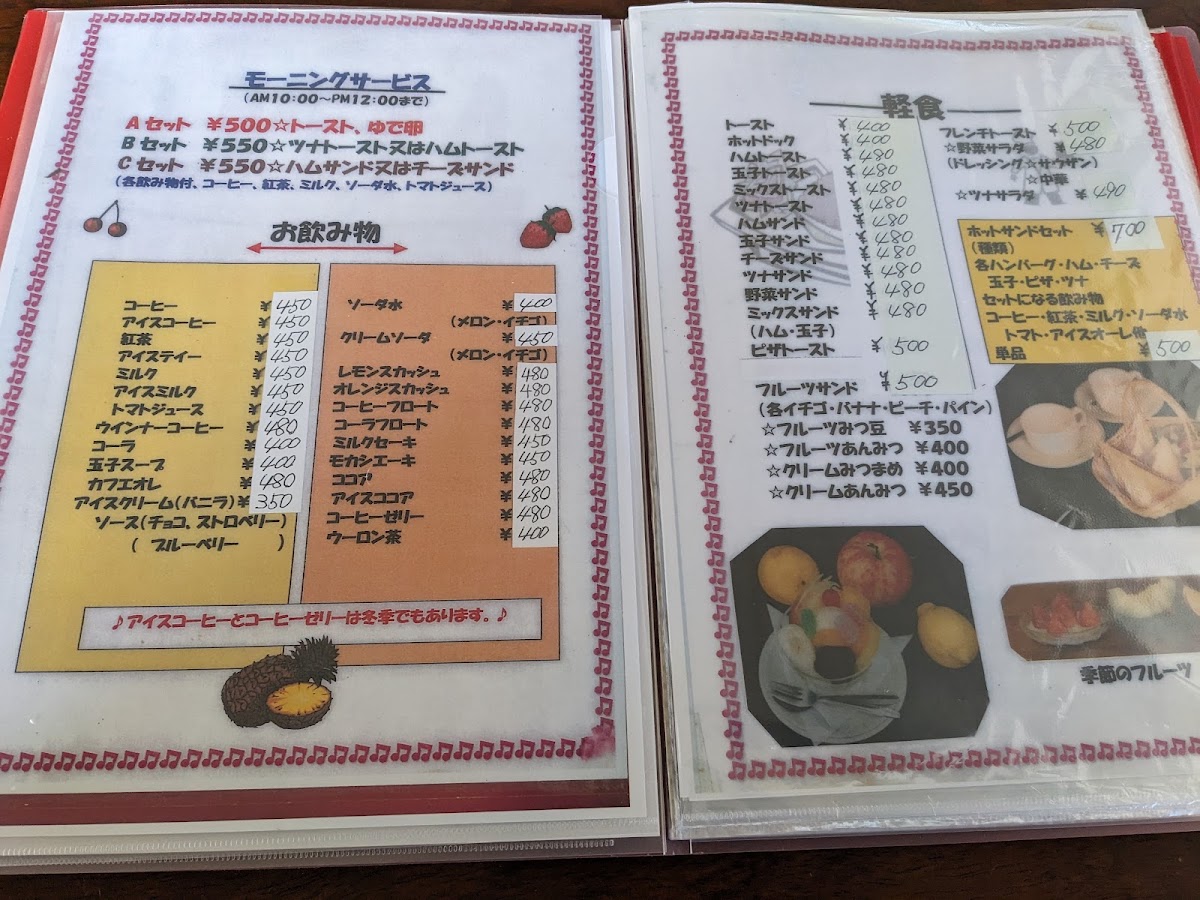 モーニングサービス
(AM10:00～PM12:00まで)
Aセット ￥500☆トースト、ゆで卵
Bセット ￥550☆ツナトースト又はハムトースト
Cセット ￥550☆ハムサンド又はチーズサンド
(各飲み物付、コーヒー、紅茶、ミルク、ソーダ水、トマトジュース)
お飲み物
コーヒー ￥450
アイスコーヒー ￥450
紅茶 ￥450
アイステイー ￥450
ミルク ￥450
アイスミルク ￥450
トマトジュース ￥450
ウインナーコーヒー ￥480
コーラ ￥400
玉子スープ ￥400
カフエオレ ￥480
アイスクリーム(バニラ)￥350
ソース(チョコ、ストロベリー)
( ブルーベリー )
ソーダ水 ￥400
(メロン・イチゴ)
クリームソーダ ￥450
(メロン・イチゴ)
レモンスカッシュ ￥480
オレンジスカッシュ ￥480
コーヒーフロート ￥480
コーラフロート ￥480
ミルクセーキ ￥450
モカシエーキ ￥450
ココア ￥480
アイスココア ￥480
コーヒーゼリー ￥480
ウーロン茶 ￥400
♪アイスコーヒーとコーヒーゼリーは冬季でもあります。♪
軽食
トースト ￥400
ホットドック ￥400
ハムトースト ￥480
玉子トースト ￥480
ミックストースト ￥480
ツナトースト ￥480
ハムサンド ￥480
玉子サンド ￥480
チーズサンド ￥480
ツナサンド ￥480
野菜サンド ￥480
ミックスサンド ￥480
(ハム・玉子)
ピザトースト ￥500
フルーツサンド ￥500
(各イチゴ・バナナ・ピーチ・パイン)
☆フルーツみつ豆 ￥350
☆フルーツあんみつ ￥400
☆クリームみつまめ ￥400
☆クリームあんみつ ￥450
フレンチトースト ￥500
☆野菜サラダ ￥480
(ドレッシング☆サウザン)
☆中華
☆ツナサラダ ￥490
ホットサンドセット ￥700
(種類)
各ハンバーグ・ハム・チーズ
玉子・ピザ・ツナ
セットになる飲み物
コーヒー・紅茶・ミルク・ソーダ水
トマト・アイスオーレ他
単品 ￥500
季節のフルーツ